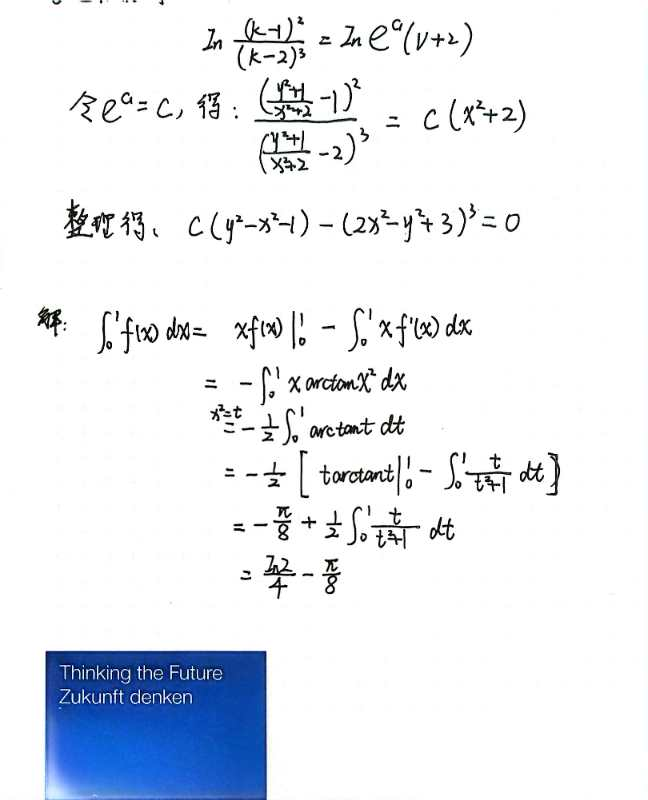 ln (k-1)²/(k-2)³ = ln eᵃ(v+2)
令eᵃ=C, 得: ((y²+1)/(x²+2) -1)² / ((y²+1)/(x²+2) -2)³ = C(x²+2)
整理得、 C(y²-x²-1) - (2x²-y²+3)³=0
解: ∫₀¹f(x) dx= xf(x)|₀¹ - ∫₀¹xf'(x) dx
= -∫₀¹ x arctanx² dx
x²=t
= -1/2 ∫₀¹ arctant dt
= -1/2 [ tarctant|₀¹ - ∫₀¹ t/(t²+1) dt]
= -π/8 + 1/2 ∫₀¹ t/(t²+1) dt
= ln2/4 - π/8
Thinking the Future
Zukunft denken